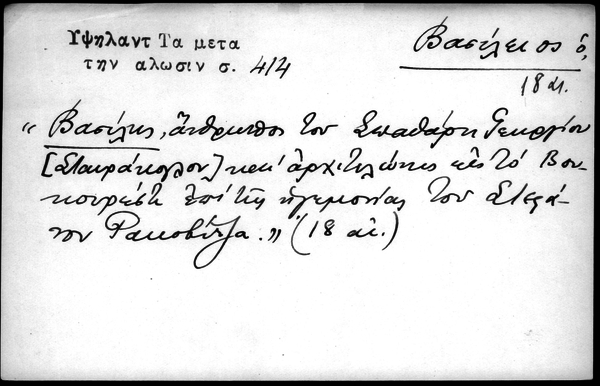 Υψηλαντ Τα μετα
την αλωσιν σ. 414
Βασίλειος ὁ,
18 αι.
"Βασίλης, ἄνθρωπος του Σπαθάρη Γεωργίου
[Σταυράκογλου] και ἀρχιτελώνης εἰς τό Βου-
κουρέστι ἐπί τῆς ηγεμονίας του Στεφά-
νου Ρακοβίτζα." (18 αἰ.)